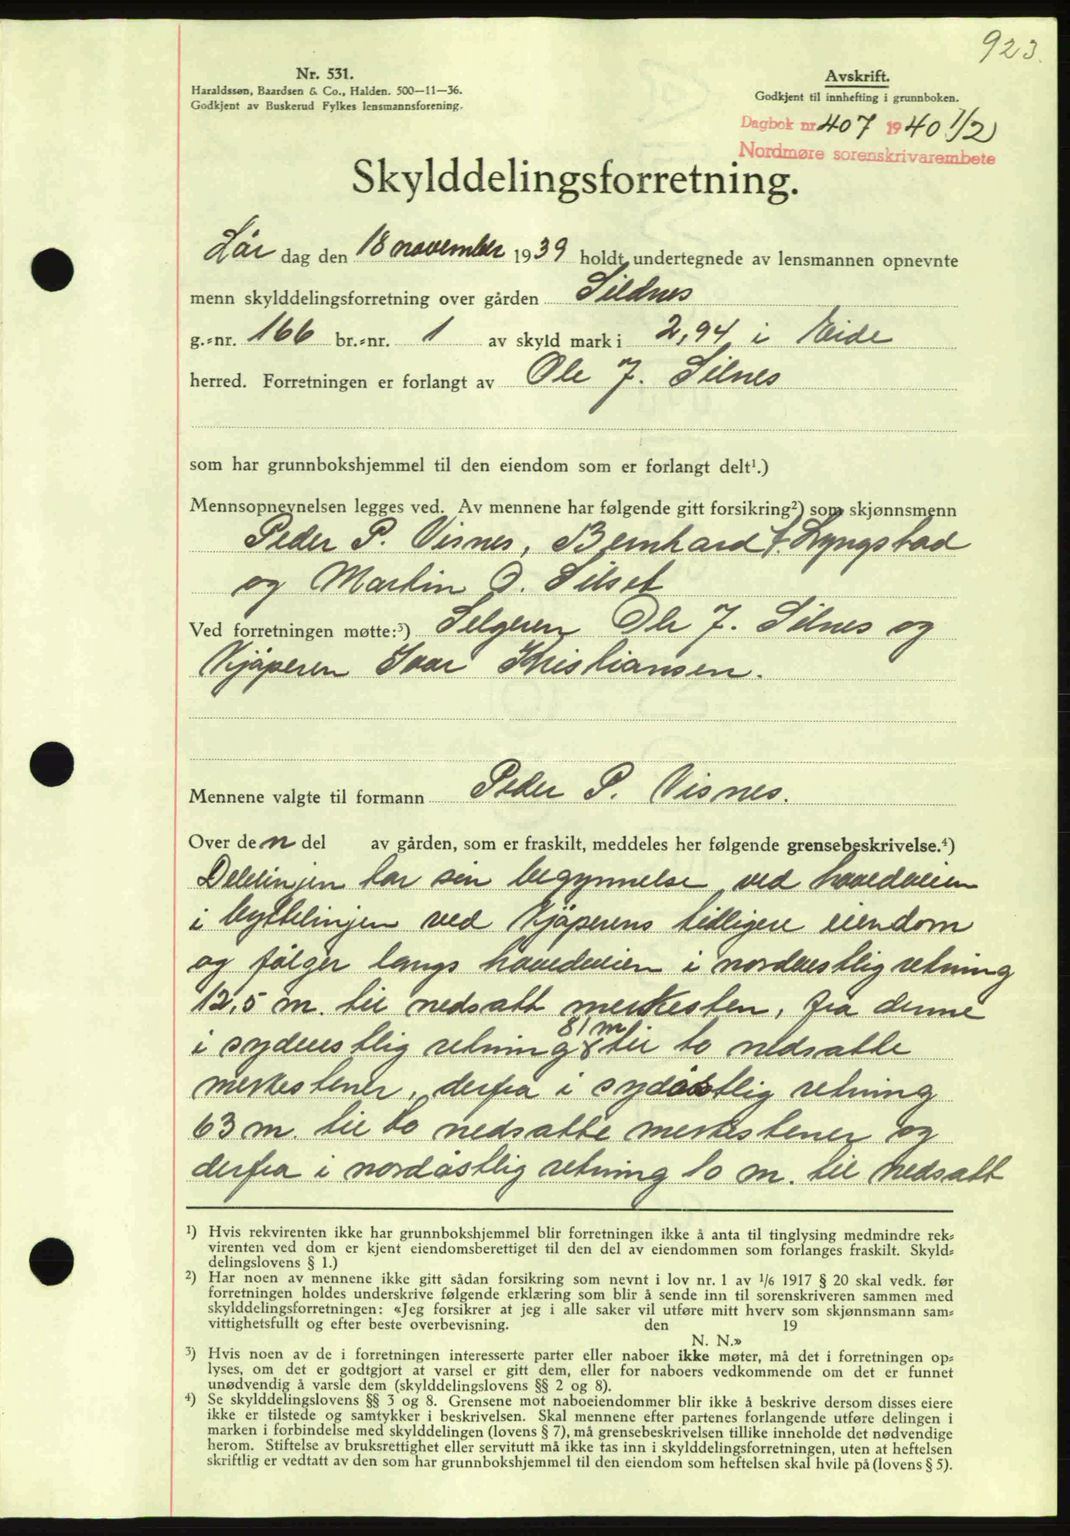 923.
Nr. 531.
Haraldssøn, Baardsen & Co., Halden. 500—11—36.
Godkjent av Buskerud Fylkes lensmannsforening.
Avskrift.
Godkjent til innhefting i grunnboken.
Dagbok nr. 407 1940 1/2
Nordmøre sorenskrivarembete
Skylddelingsforretning.
Lør dag den 18 november 1939 holdt undertegnede av lensmannen opnevnte
menn skylddelingsforretning over gården Sildnes
g.-nr. 166 br.-nr. 1 av skyld mark i 2,94 i Eide
herred. Forretningen er forlangt av Ole J. Silnes
som har grunnbokshjemmel til den eiendom som er forlangt delt¹.)
Mennsopnevnelsen legges ved. Av mennene har følgende gitt forsikring²) som skjønnsmenn
Peder P. Visnes, Bernhard Lyngstad
og Martin O. Silset
Ved forretningen møtte:³) Selgeren Ole J. Silnes og
Kjøperen Ivar Kristiansen.
Mennene valgte til formann Peder P. Visnes.
Over den del av gården, som er fraskilt, meddeles her følgende grensebeskrivelse.⁴)
Delelinjen tar sin begynnelse ved hovedveien
i byttelinjen ved Kjøperens tidligere eiendom
og følger langs hovedveien i nordvestlig retning
12,5 m. til nedsatt merkesten, fra denne
i sydvestlig retning 81 m til to nedsatte
merkestener, derfra i sydøstlig retning
63 m. til to nedsatte merkestener og
derfra i nordøstlig retning 10 m. til nedsatt
¹) Hvis rekvirenten ikke har grunnbokshjemmel blir forretningen ikke å anta til tinglysing medmindre rek-
virenten ved dom er kjent eiendomsberettiget til den del av eiendommen som forlanges fraskilt. Skyld-
delingslovens § 1.)
²) Har noen av mennene ikke gitt sådan forsikring som nevnt i lov nr. 1 av 1/6 1917 § 20 skal vedk. før
forretningen holdes underskrive følgende erklæring som blir å sende inn til sorenskriveren sammen med
skylddelingsforretningen: «Jeg forsikrer at jeg i alle saker vil utføre mitt hverv som skjønnsmann sam-
vittighetsfullt og efter beste overbevisning. den 19
N. N.»
³) Hvis noen av de i forretningen interesserte parter eller naboer ikke møter, må det i forretningen op-
lyses, om det er godtgjort at varsel er gitt dem, eller for naboers vedkommende om det er funnet
unødvendig å varsle dem (skylddelingslovens §§ 2 og 8).
⁴) Se skylddelingslovens §§ 3 og 8. Grensene mot naboeiendommer blir ikke å beskrive dersom disses eiere
ikke er tilstede og samtykker i beskrivelsen. Skal mennene efter partenes forlangende utføre delingen i
marken i forbindelse med skylddelingen (lovens § 7), må grensebeskrivelsen tillike inneholde det nødvendige
herom. Stiftelse av bruksrettighet eller servitutt må ikke tas inn i skylddelingsforretningen, uten at heftelsen
skriftlig er vedtatt av den som har grunnbokshjemmel til den eiendom som heftelsen skal hvile på (lovens § 5).